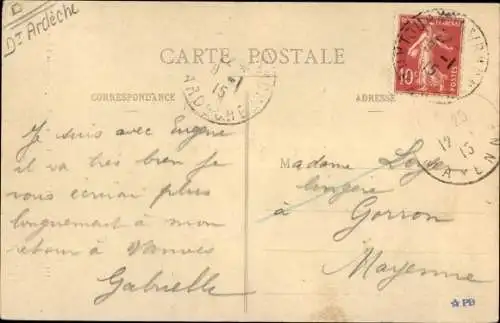 Dt Ardèche
CARTE POSTALE
CORRESPONDANCE
ADRESSE
10c
POSTES
15
ARDÈCHE
15
MAYENNE
Je suis avec Eugène
il va très bien je
vous écrirai plus
longuement à mon
retour à Vanves
Gabrielle
Madame
lingère
à Gorron
Mayenne
☆ PD